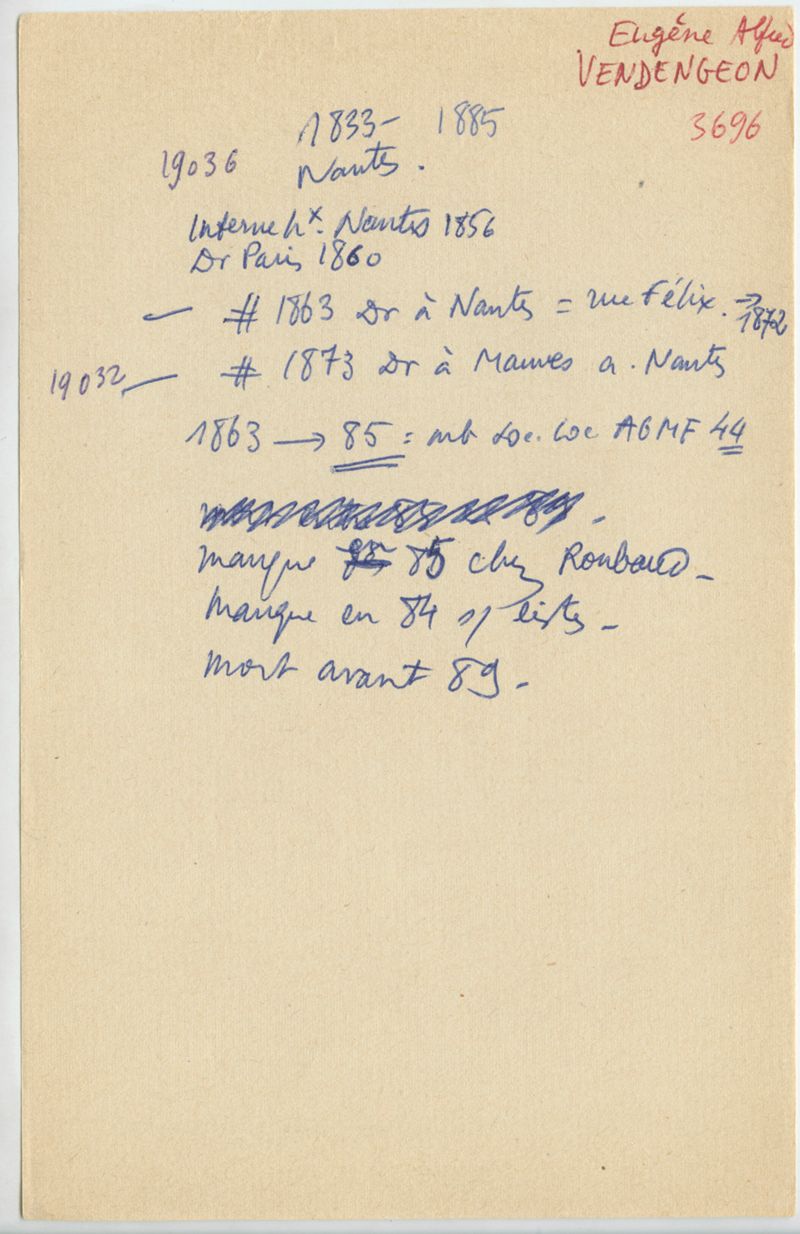 Eugène Alfred
VENDENGEON
3696
1833- 1885
19036 Nantes.
Interne hx. Nantes 1856
Dr Paris 1860
— # 1863 Dr à Nantes = rue Félix. → 1872
19032 — # 1873 Dr à Mauves a. Nantes
1863 → 85 = mb Soc. loc AGMF 44
manque 85 chez Roubaud -
Manque en 84 s/ listes -
Mort avant 89 -